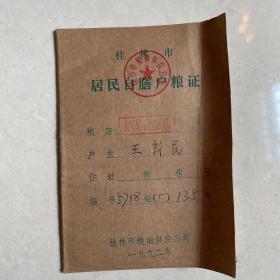 桂林市
居民自膳户粮证
粮店
户主 王新民
住址 街 巷 号
编号 5718组(1) 135
桂林市粮油供应公司
一九九二年